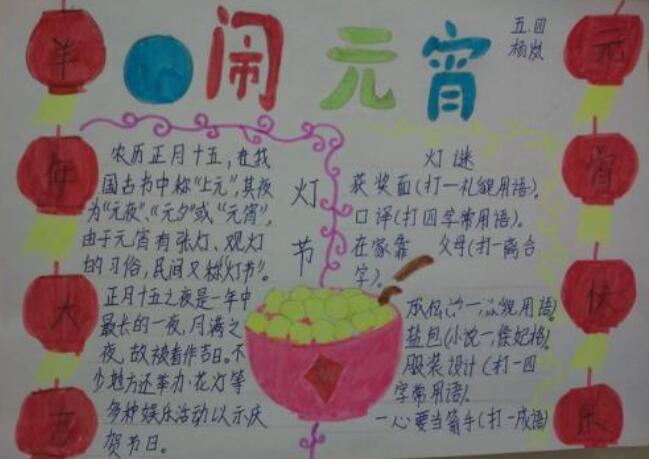 闹元宵
五.四
杨岚
羊
年
大
吉
元
宵
快
乐
农历正月十五,在我
国古书中称“上元”,其夜
为“元夜”、“元夕”或“元宵”,
由于元宵有张灯、观灯
的习俗,民间又称“灯节”。
正月十五之夜是一年中
最长的一夜,月满之
夜,故被看作吉日。不
少地方还举办花灯等
多种娱乐活动以示庆
贺节日。
灯
节
灯谜
获奖面(打一礼貌用语)。
口译(打四字常用语)。
在家靠 父母(打一离合
字)。
盐包(
服装设计(打一四
字常用语)。
一心要当箭手(打一成语)